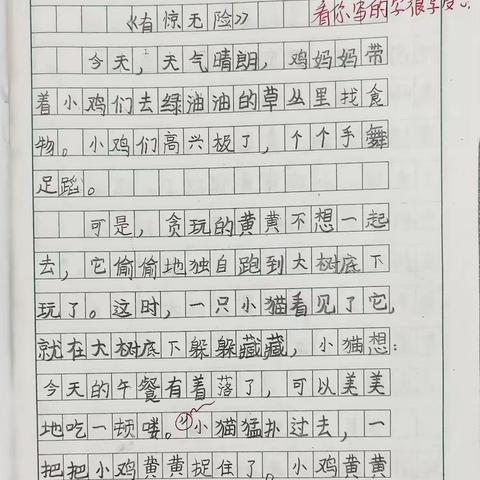 看你写的字很享受。
《有惊无险》
今天，天气晴朗，鸡妈妈带
着小鸡们去绿油油的草丛里找食
物。小鸡们高兴极了，个个手舞
足蹈。
可是，贪玩的黄黄不想一起
去，它偷偷地独自跑到大树底下
玩了。这时，一只小猫看见了它，
就在大树底下躲躲藏藏，小猫想：
今天的午餐有着落了，可以美美
地吃一顿喽。小猫猛扑过去，一
把把小鸡黄黄捉住了。小鸡黄黄